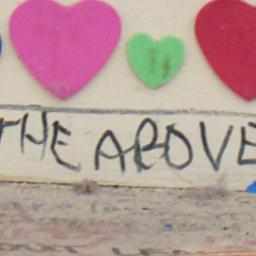 THE ABOVE